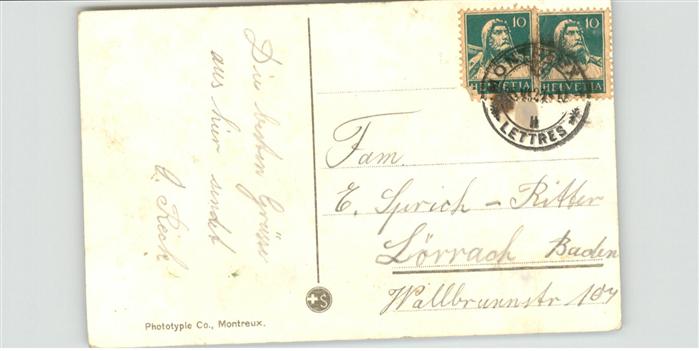 Die besten Grüsse
aus hier sendet
O. Keck
10
10
HELVETIA
HELVETIA
MONTREUX
LETTRES
Fam.
E. Sprich - Ritter
Lörrach Baden
Wallbrunnstr 107
S
Phototypie Co., Montreux.